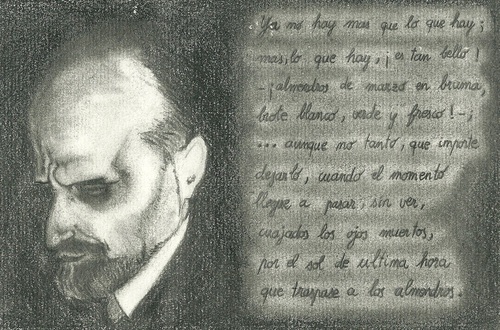 Ya no hay mas que lo que hay;
mas, lo que hay, ¡es tan bello!
-¡almendros de marzo en bruma,
brote blanco, verde y fresco!-;
... aunque no tanto, que importe
dejarlo, cuando el momento
llegue a pasar, sin ver,
cuajados los ojos muertos,
por el sol de ultima hora
que traspase a los almendros.